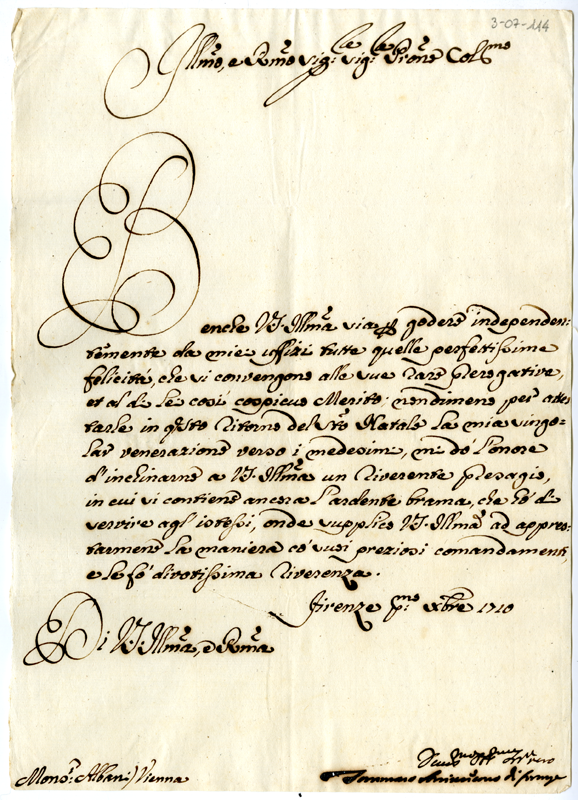 3-07-114
Illmo, e Rmo Sig:re Sig:re Prone Colmo
Benche V.S. Illma sia p godere independen:
temente da miei uffizi tutte quelle perfettissime
felicità, che si convengono alle sue rare prerogative,
et al di Lei così cospicuo Merito; nondimeno per attes
tarle in questo ritorno del Sto Natale la mia singo-
lar venerazione verso i medesimi, mi dò l'onore
d'inchinarne a V.S. Illma un riverente presagio,
in cui si contiene ancora l'ardente brama, che hò di
servire agl'istessi, onde supplico V.S. Illma ad appres-
tarmene la maniera co' suoi preziosi comandamenti,
e le fò divotissima riverenza.
Firenze pmo Xbre 1710
Di V.S. Illma, e Rma
Monsr: Albani) Vienna
Tommaso di Firenze